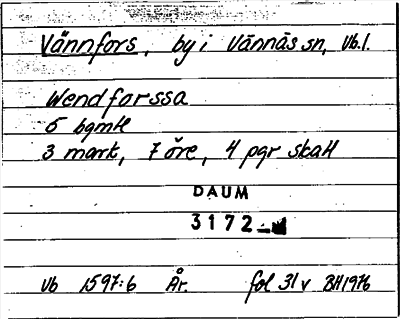 Vännfors, by i Vännäs sn, Vb.l.
Wendforssa
5 bgmtl
3 mark, 7 öre, 4 pgr skatt
DAUM
3172
Vb 1597:6 År. fol 31 v BH 1976